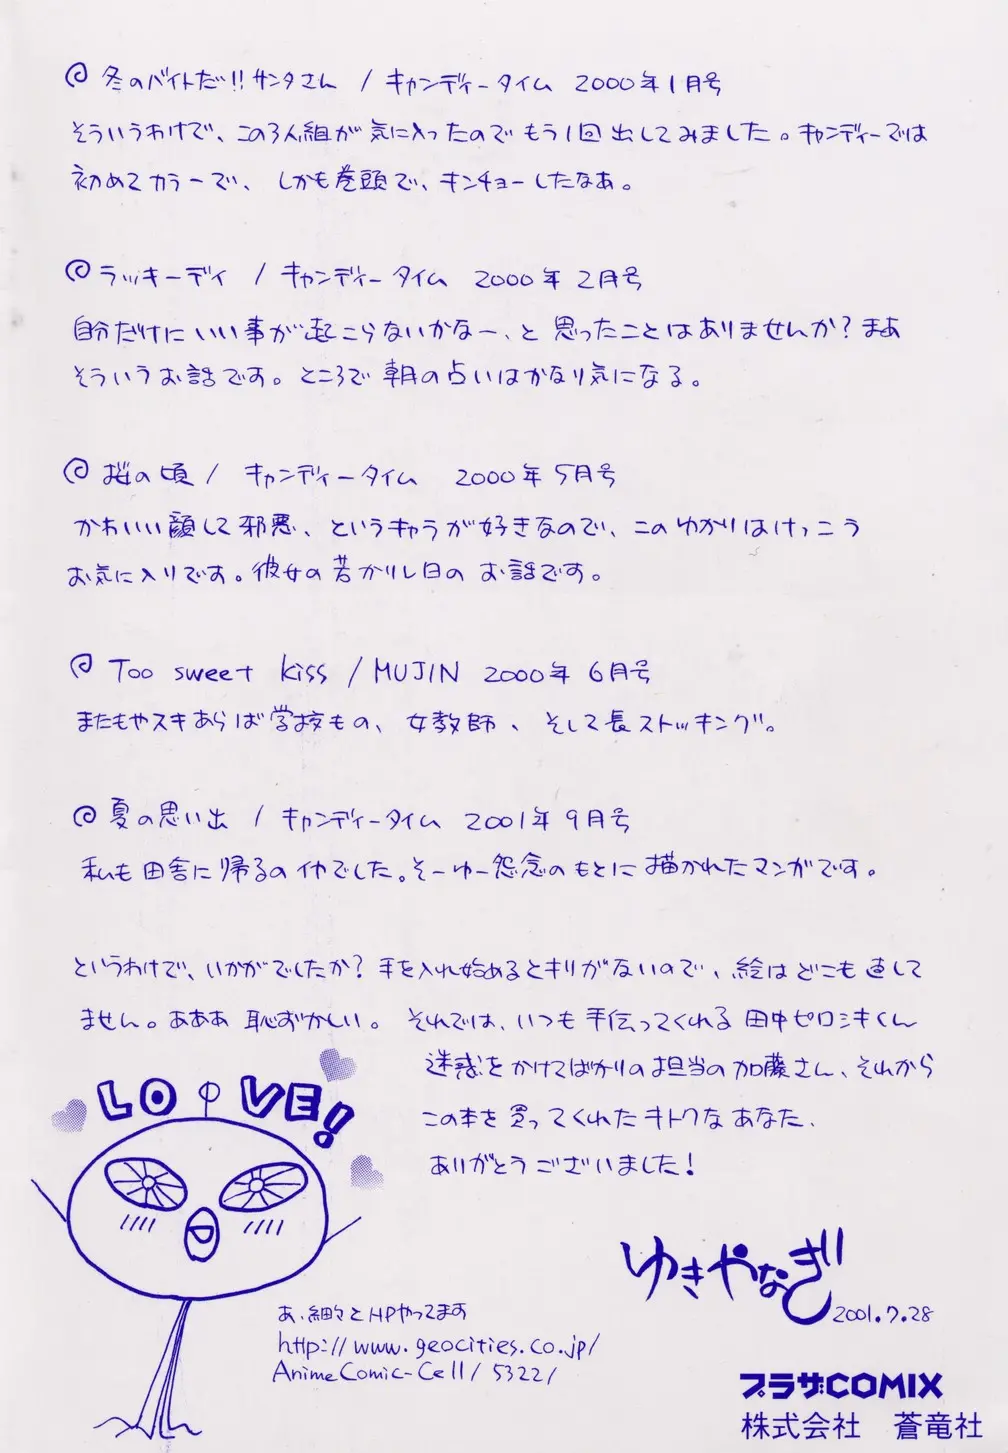 冬のバイトだ!!サンタさん / キャンディータイム 2000年1月号
そういうわけで、この3人組が気に入ったのでもう1回出してみました。キャンディーでは
初めてカラーで、しかも巻頭で、キンチョーしたなあ。
ラッキーデイ / キャンディータイム 2000年2月号
自分だけにいい事が起こらないかなー、と思ったことはありませんか?まあ
そういうお話です。ところで朝の占いはかなり気になる。
桜の頃 / キャンディータイム 2000年5月号
かわいい顔して邪悪、というキャラが好きなので、このゆかりはけっこう
お気に入りです。彼女の若かりし日のお話です。
Too sweet kiss / MUJIN 2000年6月号
またもやスキあらば学校もの、女教師、そして長ストッキング。
夏の思い出 / キャンディータイム 2001年9月号
私も田舎に帰るのイヤでした。そーゆー怨念のもとに描かれたマンガです。
というわけで、いかがでしたか?手を入れ始めるとキリがないので、絵はどこも直して
ません。あああ恥ずかしい。それでは、いつも手伝ってくれる田中ゼロシキくん
迷惑をかけてばかりの担当の加藤さん、それから
この本を買ってくれたキトクなあなた、
ありがとうございました!
LOVE!
ゆきやなぎ
2001.7.28
あ、細々とHPやってます
http://www.geocities.co.jp/
AnimeComic-Cell/5322/
プラザCOMIX
株式会社 蒼竜社